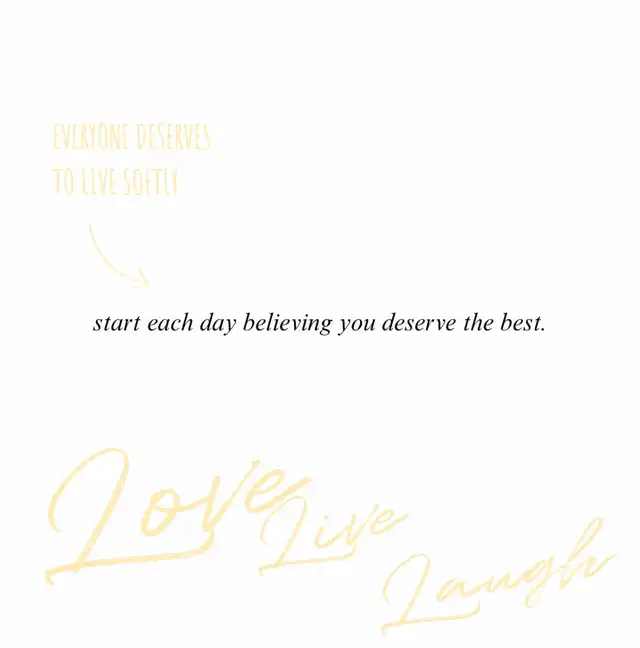 EVERYONE DESERVES
TO LIVE SOFTLY
start each day believing you deserve the best.
Love
Live
Laugh